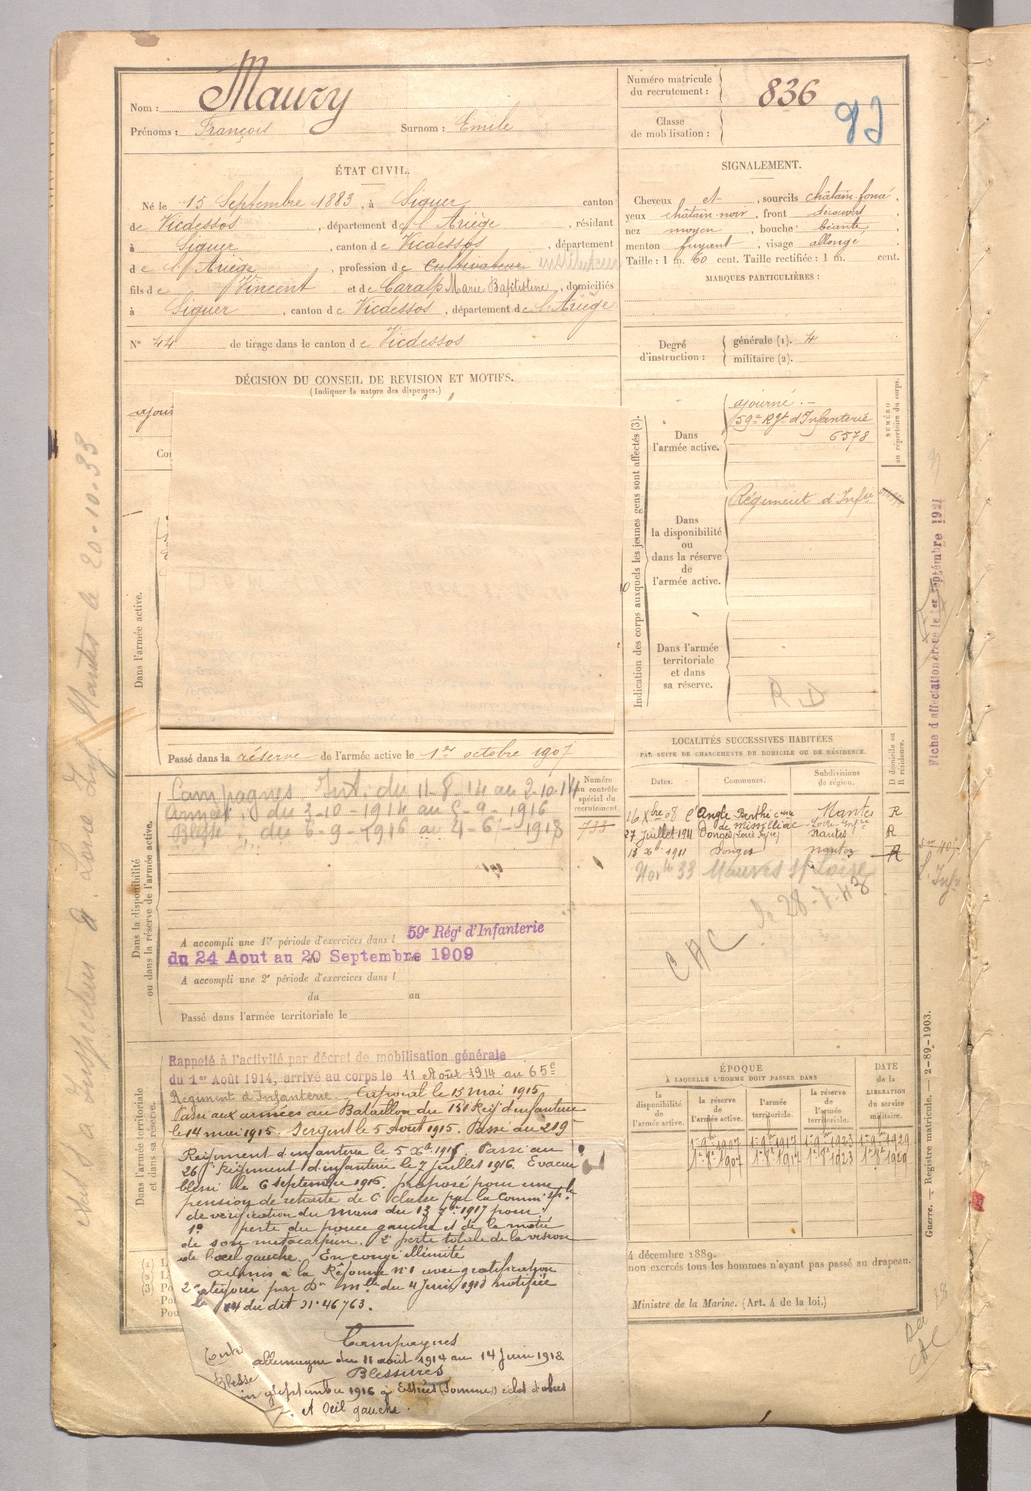 Nom : Maury
Prénoms : François Surnom : Emile
Numéro matricule du recrutement : 836
Classe de mobilisation :
ÉTAT CIVIL.
Né le 15 Septembre 1883, à Siguer canton
de Vicdessos, département de l'Ariège, résidant
à Siguer, canton de Vicdessos, département
de l'Ariège, profession de cultivateur
fils de Vincent et de Caralp Marie Baptistine, domiciliés
à Siguer, canton de Vicdessos, département de l'Ariège
N° 44 de tirage dans le canton de Vicdessos
SIGNALEMENT.
Cheveux et, sourcils châtain foncé,
yeux châtain noir, front découvert
nez moyen, bouche béante,
menton fuyant, visage allongé
Taille : 1 m. 60 cent. Taille rectifiée : 1 m. cent.
MARQUES PARTICULIÈRES :
Degré d'instruction : générale (1).
militaire (2).
DÉCISION DU CONSEIL DE REVISION ET MOTIFS.
(Indiquer la nature des dispenses.)
ajour
Co
Dans l'armée active.
Indication des corps auxquels les jeunes gens sont affectés (3).
NUMÉRO au répertoire du corps.
Dans l'armée active.
ajourné.
59e Rgt d'Infanterie
6578
Dans la disponibilité ou dans la réserve de l'armée active.
Régiment d'Infie
Dans l'armée territoriale et dans sa réserve.
R D
Passé dans la réserve de l'armée active le 1er octobre 1907
Dans la disponibilité ou dans la réserve de l'armée active.
Numéro au contrôle spécial du recrutement
Campagnes Int. du 11-8-14 au 2-10-14
du 3-10-1914 au 5-9-1916
du 6-9-1916 au 4-6-1918
A accompli une 1re période d'exercices dans l 59e Régt d'Infanterie
du 24 Aout au 20 Septembre 1909
A accompli une 2e période d'exercices dans l
du au
Passé dans l'armée territoriale le
LOCALITÉS SUCCESSIVES HABITÉES
PAR SUITE DE CHANGEMENTS DE DOMICILE OU DE RÉSIDENCE.
Dates. Communes. Subdivisions de région. D domicile ou R résidence.
16 Xbre 08 Nantes R
de Missillac Loire-Infre
27 Juillet 1911 Donges (Loire Infre) Nantes R
1911 Donges Nantes R
33 Mauves s/ Loire
28-7-43
CAC
Dans l'armée territoriale et dans sa réserve.
Rappelé à l'activité par décret de mobilisation générale
du 1er Août 1914, arrivé au corps le 11 Août 1914 au 65e
Régiment d'Infanterie. Caporal le 15 mai 1915.
Passé aux armées au Bataillon du 131 Rég d'infanterie
le 14 mai 1915. Sergent le 5 Août 1915. Passé au 219e
Régiment d'infanterie le 5 Passé au
26 Régiment d'infanterie le 7 juillet 1916. Evacué
blessé le 6 septembre 1916. proposé pour une
pension de retraite de 6 classe par la Comm. sple
de vérification du Mans du 13 1917 pour
1° perte du pouce gauche et de la moitié
de son métacarpien. 2° perte totale de la vision
de l'oeil gauche. En congé illimité
Admis à la Réforme n°1 avec gratification
2e catégorie par Don mlle du 4 Juin 1918 notifiée
le 14 du dit N° 46763.
Campagnes
allemagne du 11 août 1914 au 14 Juin 1918
Blessures
septembre 1916 à Estrées (Somme) éclat d'obus
et Oeil gauche.
ÉPOQUE
À LAQUELLE L'HOMME DOIT PASSER DANS
la disponibilité de l'armée active. la réserve de l'armée active. l'armée territoriale. la réserve de l'armée territoriale. DATE de la LIBÉRATION du service militaire.
1er 8bre 1907 1er 8bre 1917 1er 8bre 1923 1er 8bre 1929
4 décembre 1889.
non exercés tous les hommes n'ayant pas passé au drapeau.
Ministre de la Marine. (Art. 4 de la loi.)
Fiche d'affectation créée le 1er septembre 1921
Guerre. — Registre matricule. — 2-89-1903.
Loire Inf. Nantes le 20-10-33